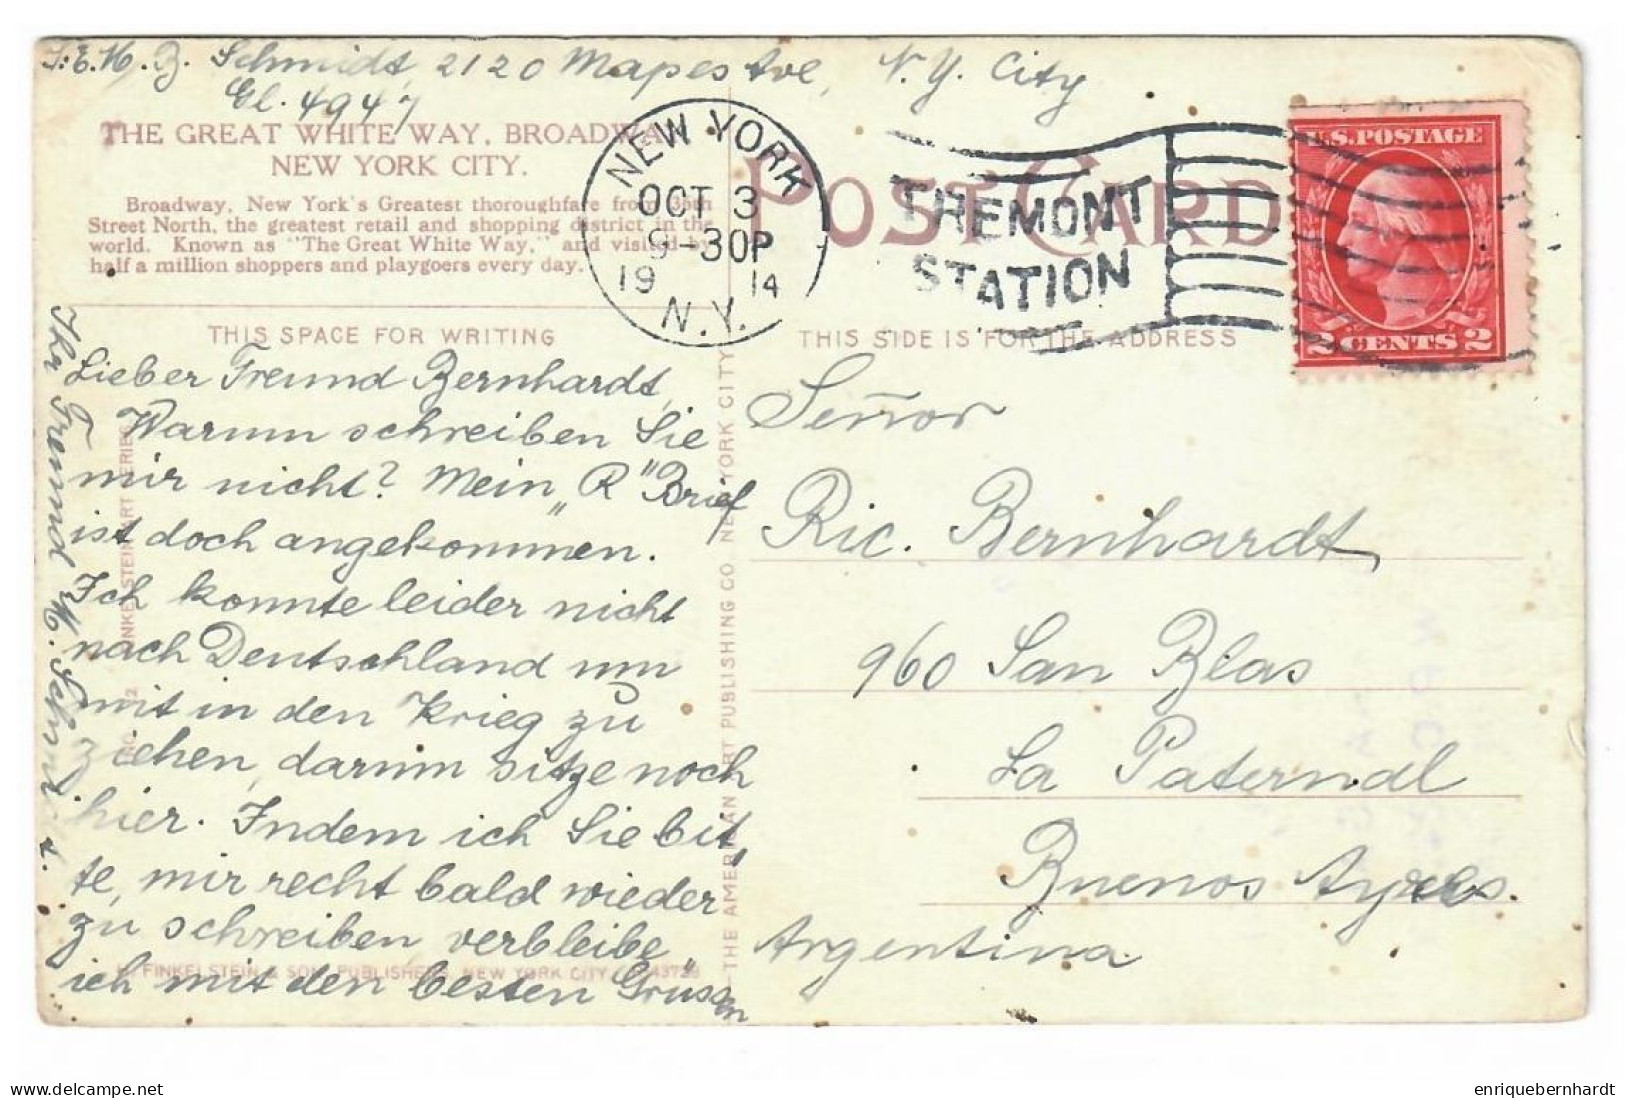 Schmidt, 2120 Mapes Ave, N.Y. City
Gl. 4947
THE GREAT WHITE WAY, BROADWAY
NEW YORK CITY.
Broadway, New York's Greatest thoroughfare from
Street North, the greatest retail and shopping district in the
world. Known as "The Great White Way," and visited by
half a million shoppers and playgoers every day.
NEW YORK
OCT 3
9-30P
19 14
N.Y.
TREMONT
STATION
POST CARD
U.S. POSTAGE
2 CENTS 2
THIS SPACE FOR WRITING
THIS SIDE IS FOR THE ADDRESS
Lieber Freund Bernhardt,
Warum schreiben Sie
mir nicht? Mein „R" Brief
ist doch angekommen.
Ich konnte leider nicht
nach Deutschland um
mit in den Krieg zu
ziehen, darum sitze noch
hier. Indem ich Sie bit„
te, mir recht bald wieder
zu schreiben verbleibe
ich mit den besten Grüssen
Ihr Freund M. Schmidt.
Señor
Ric. Bernhardt,
960 San Blas
La Paternal
Buenos Ayres.
Argentina
THE AMERICAN ART PUBLISHING CO. NEW YORK CITY
FINKELSTEIN & SON, PUBLISHERS, NEW YORK CITY
enriquebernhardt
© delcampe.net